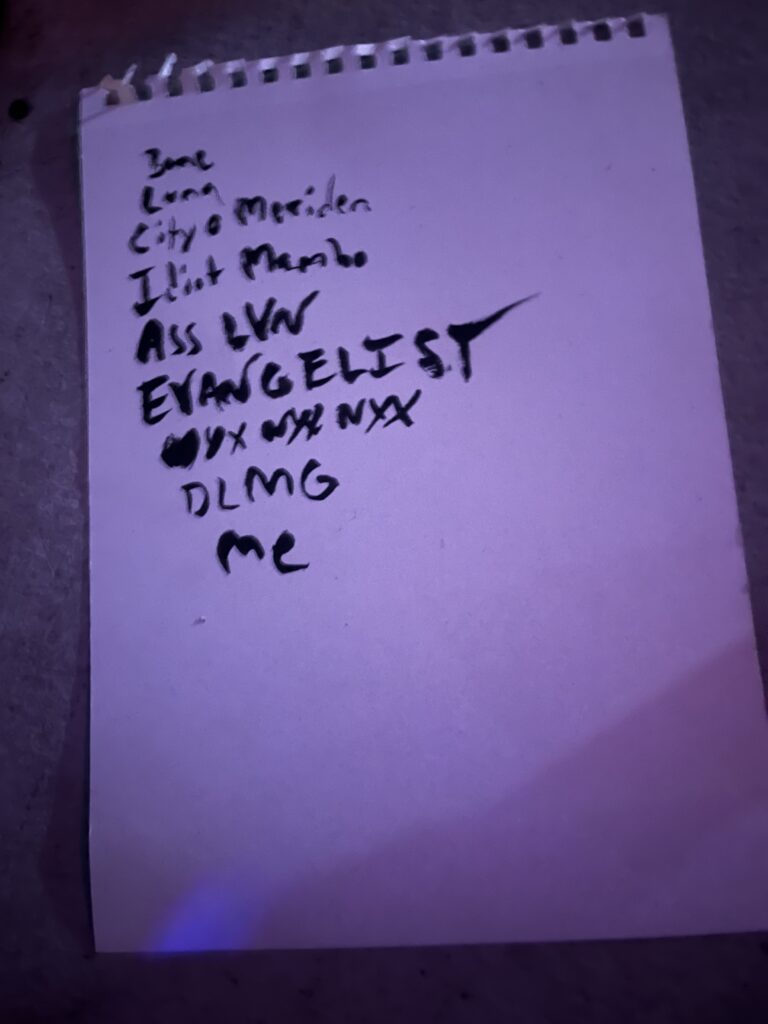 Luna
City o Meriden
Idiot Mambo
ASS LVN
EVANGELIST
NYX NYX
DLMG
Me